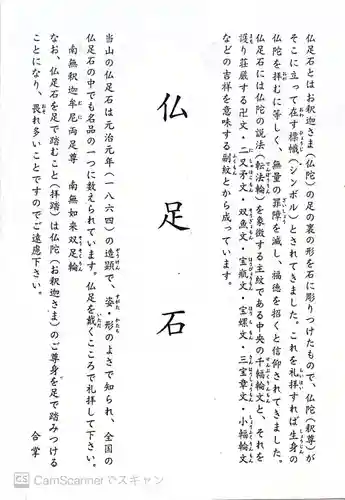 仏足石とはお釈迦さま（仏陀）の足の裏の形を石に彫りつけたもので、仏陀（釈尊）が
そこに立って在す標幟（シンボル）とされてきました。これを礼拝すれば生身の
仏陀を拝むに等しく、無量の罪障を滅し、福徳を招くと信仰されてきました。
仏足石には仏陀の説法（転法輪）を象徴する主紋である中央の千幅輪文と、それを
護り荘厳する卍文・二叉矛文・双魚文・宝瓶文・宝螺文・三宝章文・小幅輪文
などの吉祥を意味する副紋とから成っています。
仏足石
当山の仏足石は元治元年（一八六四）の造顕で、姿・形のよさで知られ、全国の
仏足石の中でも名品の一つに数えられています。仏足を戴くこころで礼拝して下さい。
南無釈迦牟尼両足尊　南無如来双足輪
なお、仏足石を足で踏むこと（拝踏）は仏陀（お釈迦さま）のご尊身を足で踏みつける
ことになり、畏れ多いことですのでご遠慮下さい。
合掌
CS CamScannerでスキャン